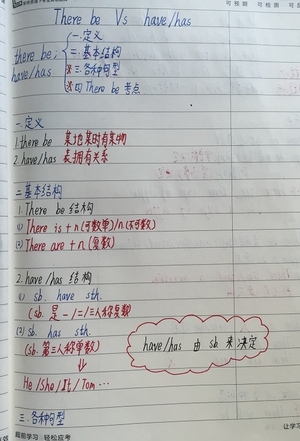 可预期 可检测 可反
There be Vs have/has
there be;
have/has
一.定义
二.基本结构
※三.各种句型
※四 There be 考点
一.定义
1.there be 某地某时有某物
2.have/has 表拥有关系
二.基本结构
1. There be 结构
(1) There is + n(可数单)/n.(不可数)
(2) There are + n (复数)
2. have/has 结构
(1) sb. have sth.
(sb. 是一/二/三人称复数)
(2) sb. has sth.
(sb. 第三人称单数)
have/has 由 sb 来决定
↓
He/She/It/Tom …
三.各种句型
超前学习 轻松应考
让学习